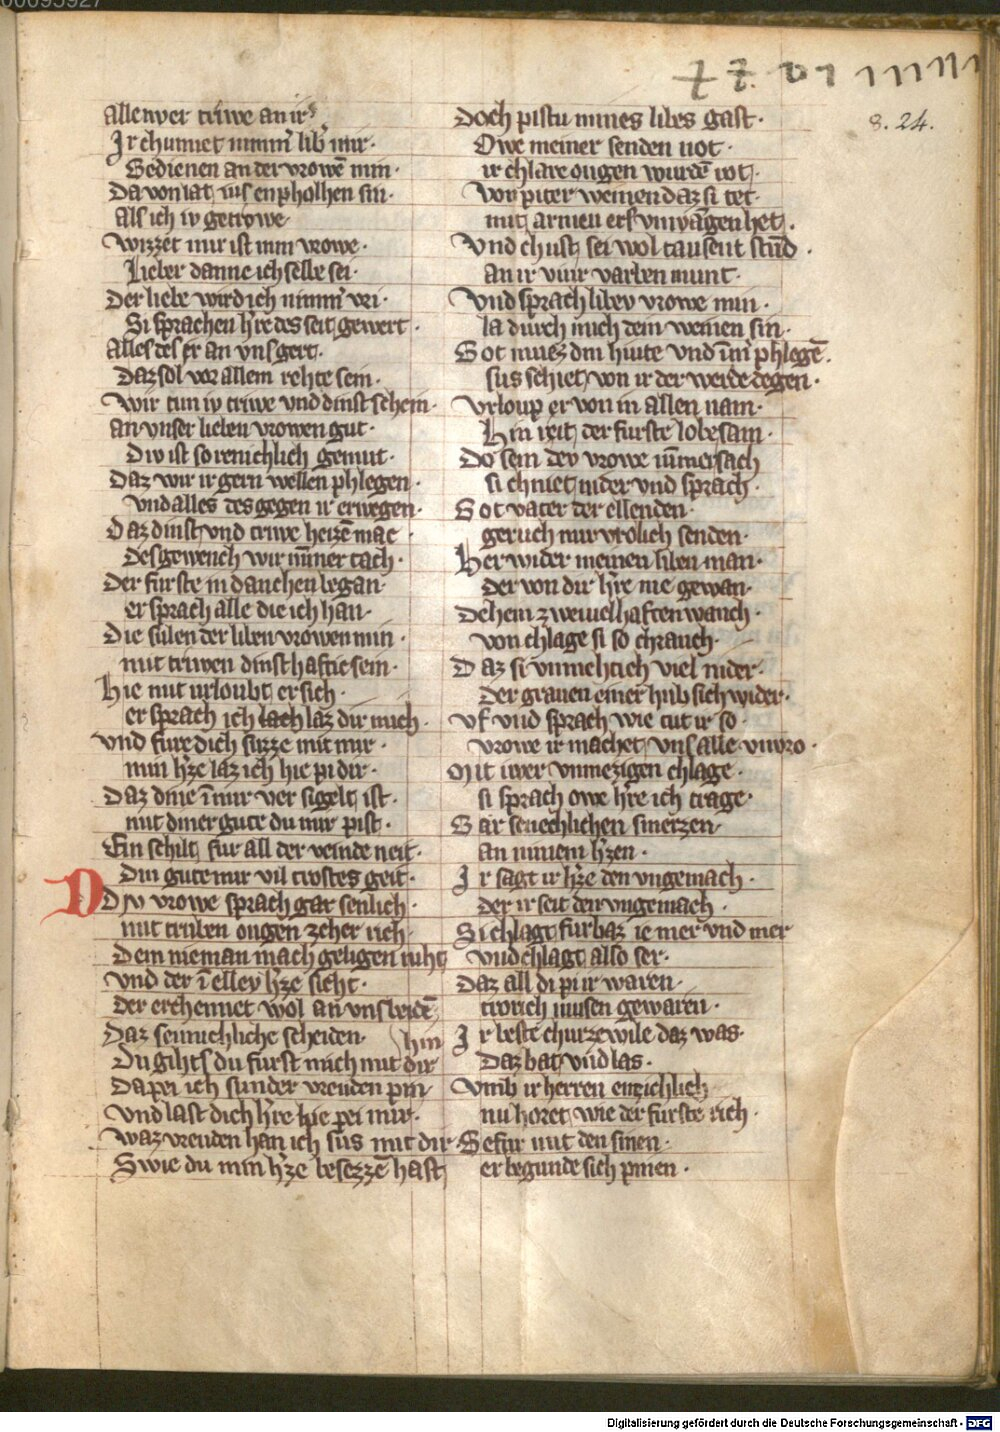 00095927
8. 24.
alle iwer triwe an ir
Ir chumet nimm̄ lib̾ mir ·
Gedienen an der vrowē min ·
Da von lat iu's enpholhen sin ·
als ich iv getrowe ·
wizzet mir ist min vrowe ·
Lieber danne ich selbe sei ·
Der liebe wird ich nimm̄ vri ·
Si sprachen h̾re des seit gewert ·
Alles des ir an vns gert ·
Daz sol vor allem rehte sein ·
wir tun iv triwe vnd dinst schein ·
an vnser lieben vrowen gut ·
Div ist so reinichlich gemut ·
Daz wir ir gern wellen phlegen ·
vnd alles des gegen ir erwegen ·
Daz dinst vnd triwe heizē mac ·
des gewench wir nīmer tach ·
Der furste in danchen began ·
er sprach alle die ich han ·
Die sulen der liben vrowen min ·
mit triwen dinsthaftic sein ·
Hie mit urloubt er sich ·
er sprach ich lach laz dir mich ·
vnd fure dich suzze mit mir ·
min h̾ze laz ich hie pi dir ·
Daz dine ī mir ver sigelt ist ·
mit diner gute du mir pist ·
Ein schilt fur all der veinde neit ·
Din gute mir vil trostes geit ·
D Div vrowe sprach gar senlich ·
mit truben ougen zeher rich ·
Dem nieman mach geligen niht
vnd der ī elley h̾ze sicht ·
der erchennet wol an vns beidē
Daz seinichliche scheiden ·
hin
Du gihts du furst mich mit dir
Da pei ich sunder vreuden pin ·
vnd last dich h̾re hie pei mir ·
waz vreuden han ich sus mit dir ·
Swie du min h̾ze besezzē hast
Doch pistu mines libes gast ·
Owe meiner senden not ·
ir chlare ougen wurdē rot ·
Vor piter weinen daz si tet ·
mit armen er s' vmvangen het ·
Vnd chust sei wol tausent stūd ·
an ir viur varben munt ·
Vnd sprach libev vrowe min ·
la durch mich dein weinen sin ·
Got muez din hiute vnd īm̄ phlegē ·
sus schiet von ir der werde degen ·
Vrloup er von in allen nam ·
Hin reit der furste lobesam ·
Do sein dev vrowe nīmer sach
si chniet nider vnd sprach ·
Got vater der ellenden ·
geruch mir vrolich senden ·
Her wider meinen liben man ·
der von dir h̾re nie gewan ·
Dehein zweiuelhaften wanch ·
von chlage si so chranch ·
Daz si vnmehtich viel nider ·
der grauen einer hub sich wider ·
Vf vnd sprach wie tut ir so ·
vrowe ir machet vns alle vnvro ·
Mit iwer vnmezigen chlage ·
si sprach owe h̾re ich trage ·
Gar senechlichen smerzen ·
an minem h̾zen ·
Ir sagt ir h̾ze den vngemach ·
der ir seit den vngemach ·
Si chlagt furbaz ie mer vnd mer
vnd chlagt also ser ·
Daz all di pi ir waren ·
trorich musen gewaren ·
Ir beste churzewile daz was ·
Daz bat vnd las ·
Vmb ir herren enzichlich
nu horet wie der furste rich ·
Gefur mit den sinen ·
er begunde sich pinen ·
Digitalisierung gefördert durch die Deutsche Forschungsgemeinschaft · DFG